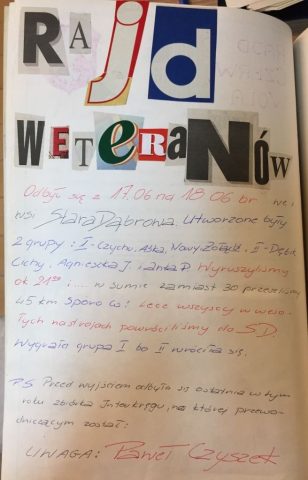 RAjd
WETERaNÓW
Odbył się z 17.06 na 18.06 br we
wsi Stara Dąbrowa. Utworzone były
2 grupy: I - Czychu, Aśka, Nowy, Żołądź, i II - Dębik,
Cichy, Agnieszka J. i Anka P. Wyruszyliśmy
ok. 21 i .... w sumie zamiast 30 przeszliśmy
45 km. Sporo Co! Lecz wszyscy w weso-
łych nastrojach powróciliśmy do SD.
Wygrała grupa I bo II wróciła się.
PS Przed wyjściem odbyła się ostatnia w tym
roku zbiórka Interkręgu, na której przewo-
dniczącym został:
UWAGA: Paweł Czyszek